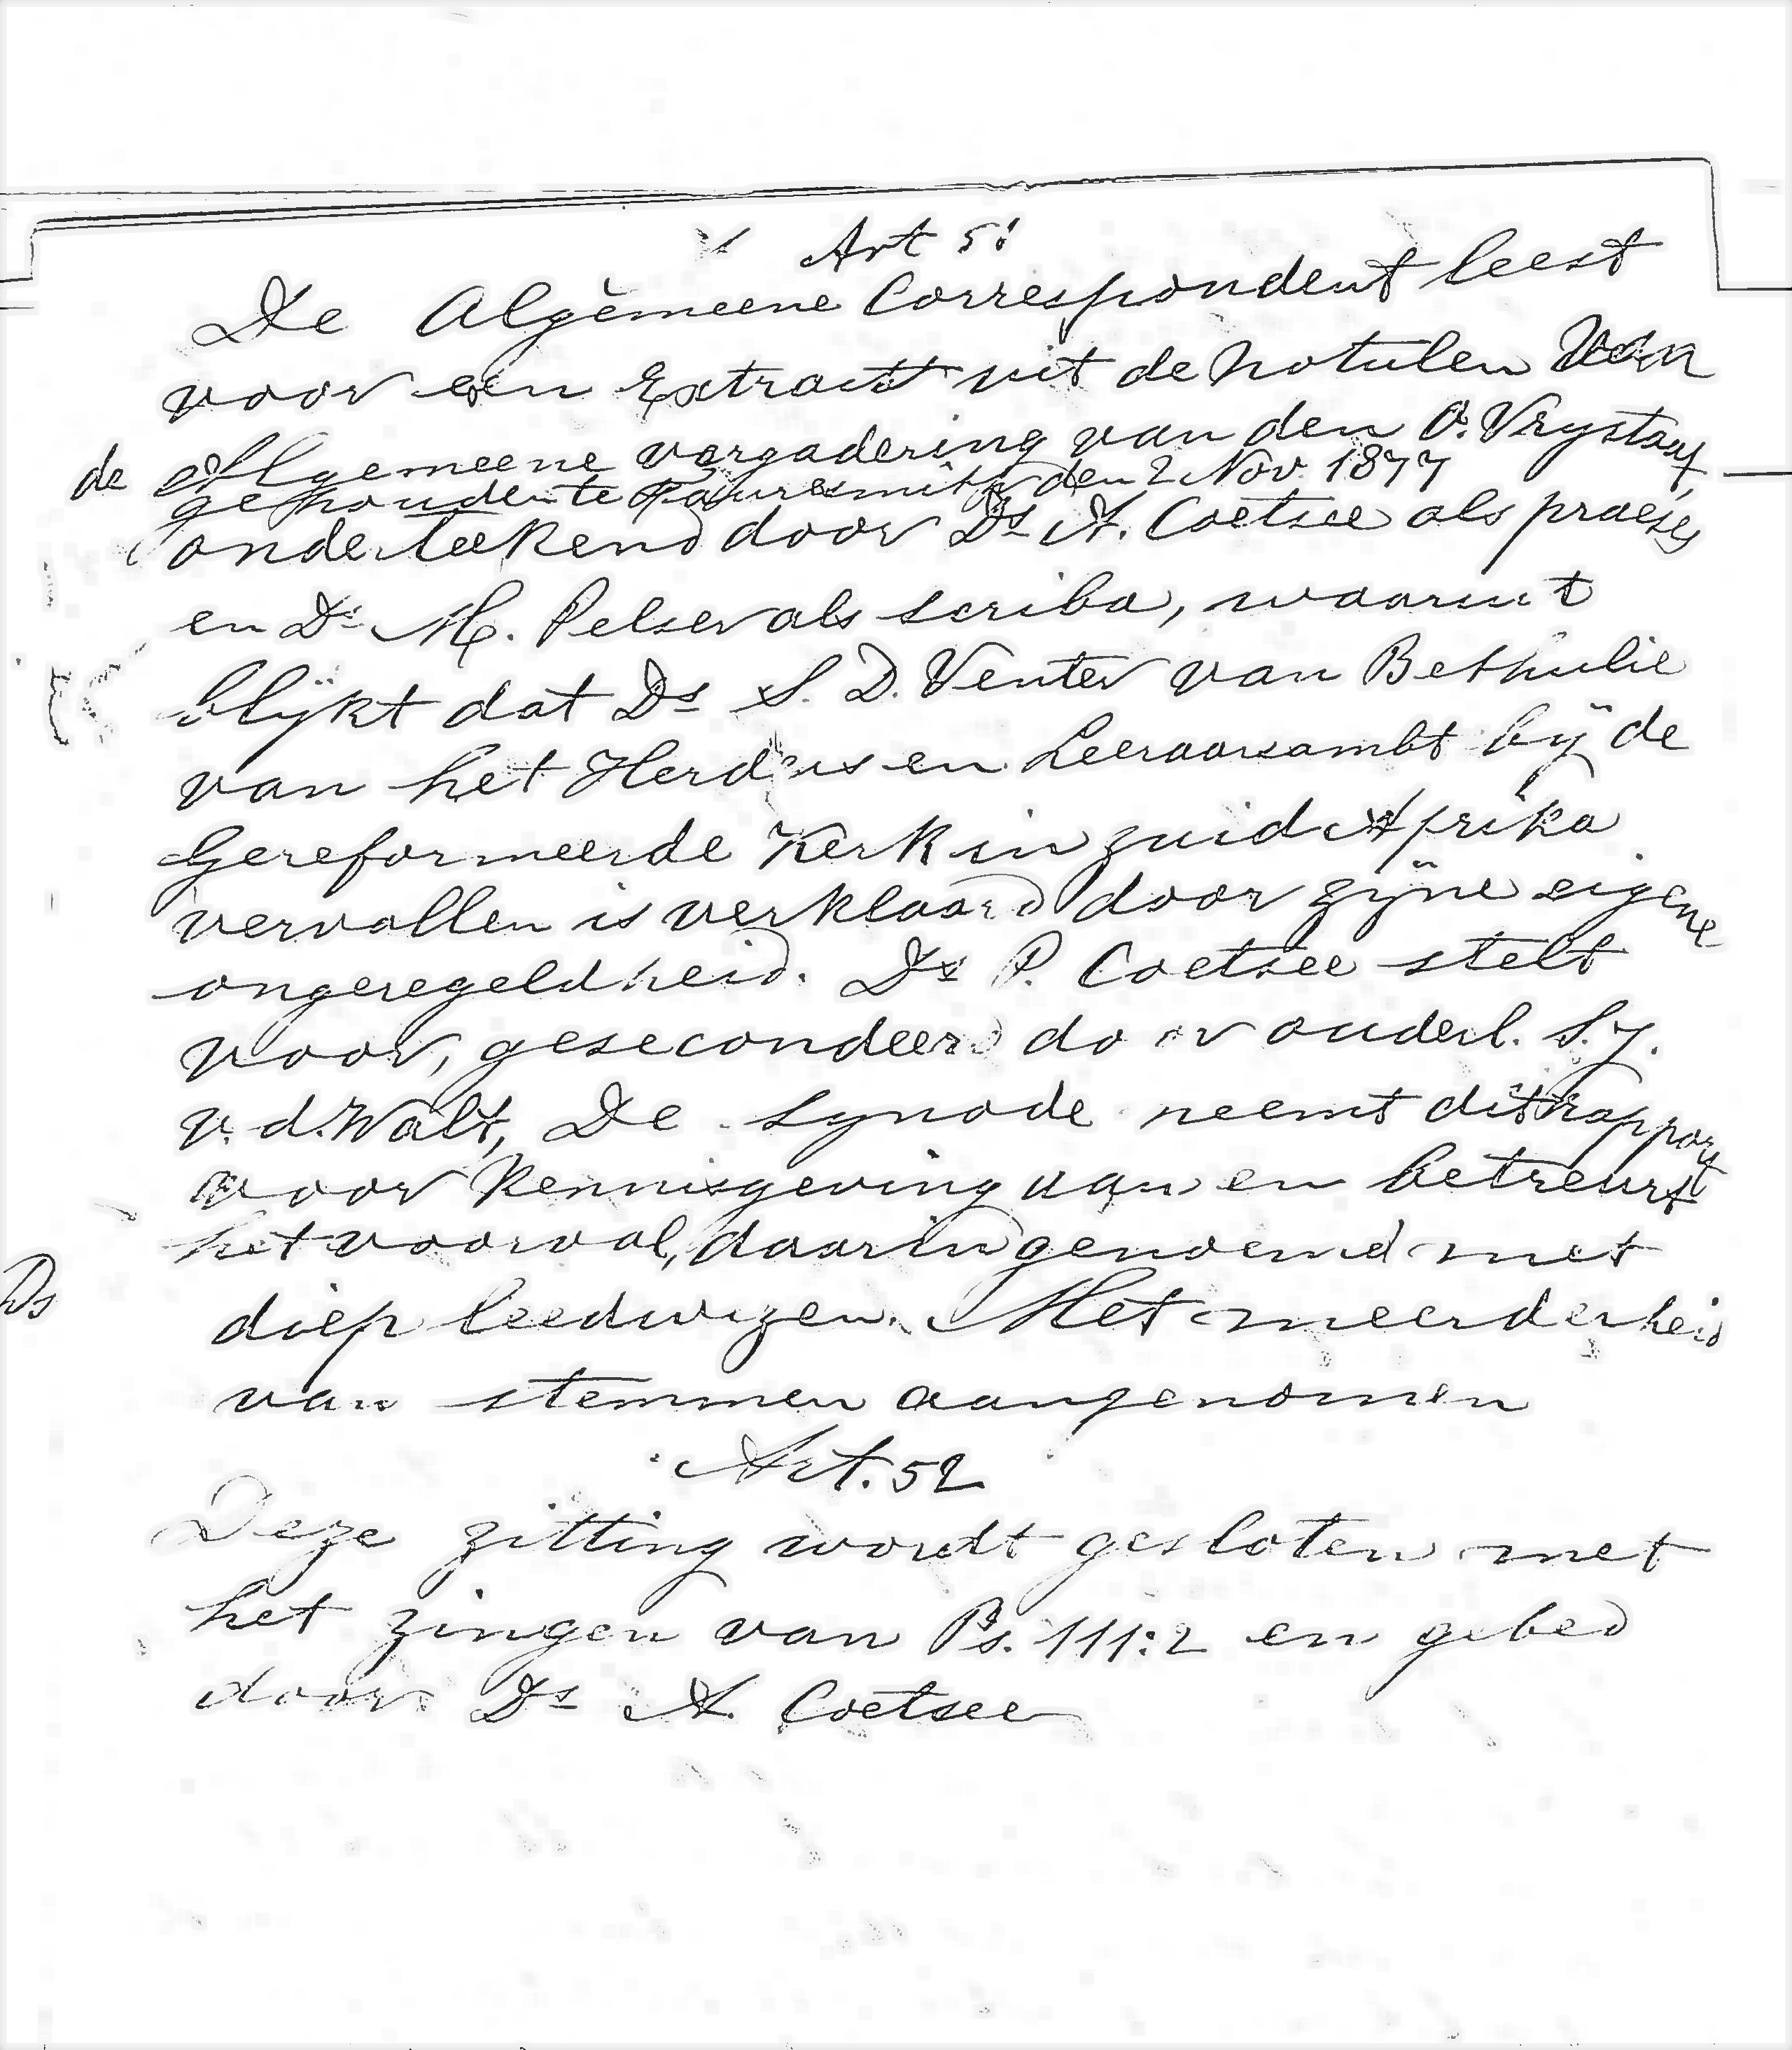 Art 51
De Algemeene Correspondent leest
voor een Extract uit de Notulen van
de Algemeene vergadering van den O. Vrystaat,
gehouden te Fauresmith den 2 Nov. 1877
onderteekend door Ds A. Coetsee als praeses
en Ds M. Pelser als scriba, waaruit
blijkt dat Ds S. D. Venter van Bethulie
van het Herders en Leeraarsambt bij de
Gereformeerde Kerk in Zuid Afrika
vervallen is verklaard door zijne eigene
ongeregeldheid. Ds P. Coetsee stelt
voor, gesecondeerd door ouderl. S. J.
v. d. Walt, De Synode neemt dit rapport
voor kennisgeving aan en betreurt
het voorval, daarin genoemd met
Ds
diep leedwezen. Met meerderheid
van stemmen aangenomen
Art. 52
Deze zitting wordt gesloten met
het zingen van Ps. 111:2 en gebed
door Ds A. Coetsee